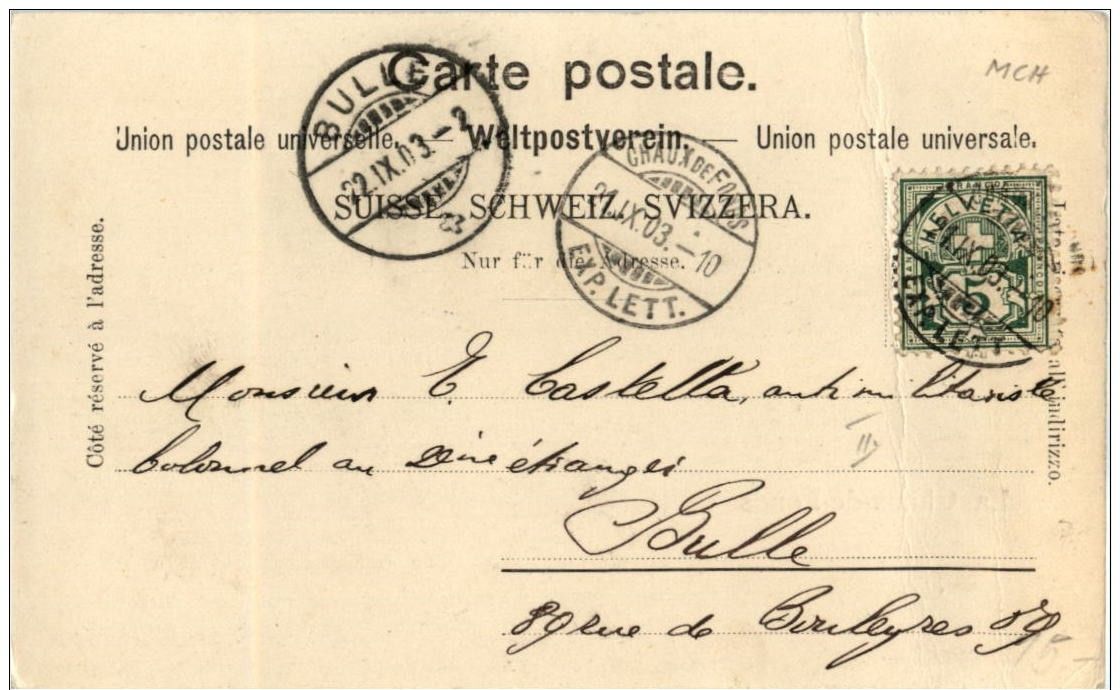 Carte postale.
MCH
Union postale universelle. — Weltpostverein. — Union postale universale.
SUISSE. SCHWEIZ. SVIZZERA.
Nur für die Adresse.
Côté réservé à l'adresse.
all'indirizzo.
BULLE
22.IX.03.-2
CHAUX DE FONDS
21.IX.03.-10
EXP. LETT.
HELVETIA
FRANCO
5
IX.03.-10
EXP. LETT.
Monsieur E. Castella, antimilitariste
Colonel au 2ème étranger
Bulle
89 rue de Bouleyres 89
15-